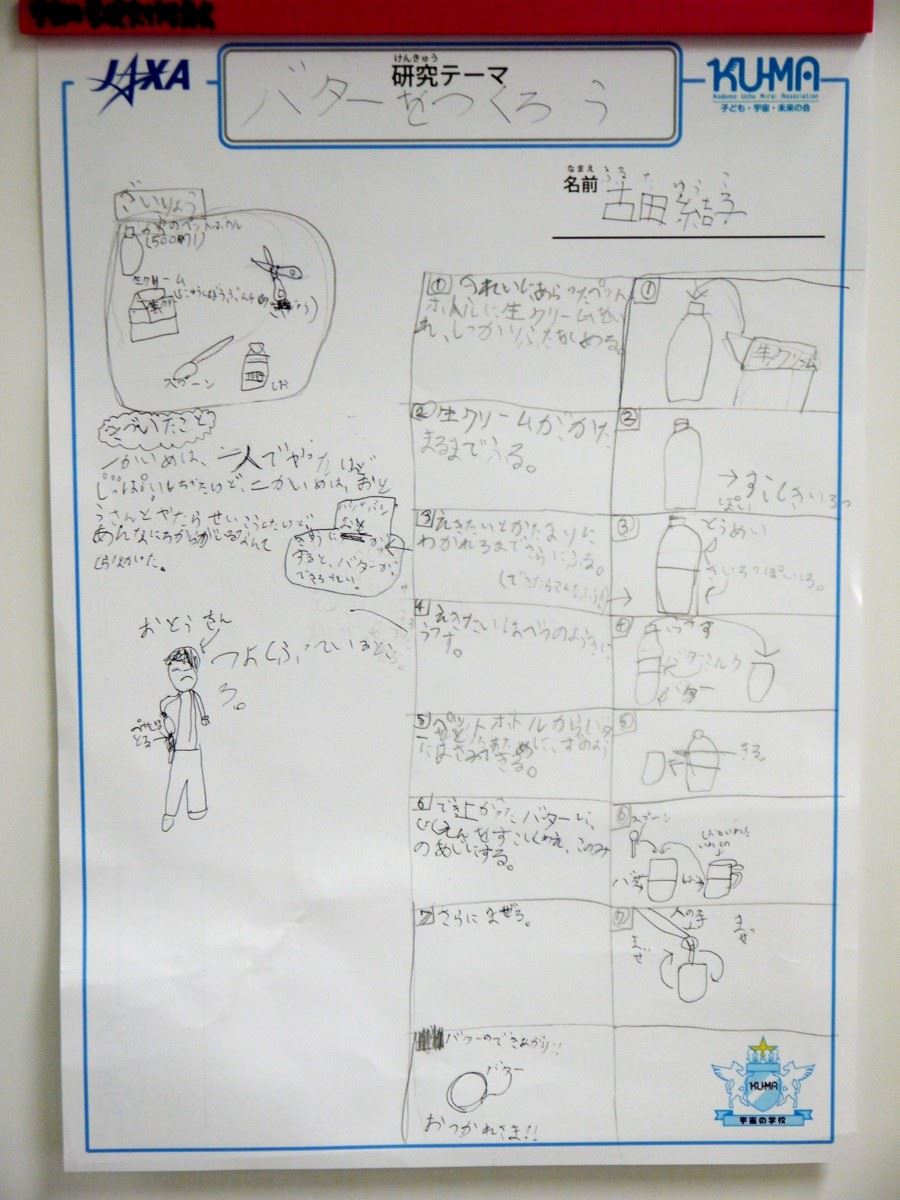 JAXA
けんきゅう
研究テーマ
バターをつくろう
KU-MA
Kodomo Uchu Mirai Association
子ども・宇宙・未来の会
なまえ
名前
ふるた ゆうこ
古田 結子
ざいりょう
生クリーム
スプーン
しお
きづいたこと
一かいめは、一人でやったけど
しっぱいしちゃたけど、二かいめは、おと
うさんとやたらせいこうしたけど
あんなにちからがいるなんて
しらなかった。
すると、バターが
おとうさん
つよくふっているところ
ろ。
① きれいにあらったペット
ボトルに生クリームをい
れ、しっかりふたをしめる。
①
生クリーム
② 生クリームがかた
まるまでふる。
②
→すこしきいろっ
ぽい
③ えきたいとかたまりに
わかれるまでさらにふる。
③
とうめい
きいろっぽいいろ。
4 えきたいはべつのようきに
うつす。
④
うつす
ミルク
バター
5 ペットボトルからバター
にはさみできる。
5
きる
6 でき上がったバターに、
しょくえんをすこしくわえ、このみ
のあじにする。
⑥
スプーン
7 さらにまぜる。
⑦
人の手
まぜ
まぜ
バターのできあがり!!
バター
おつかれさま!!
KUMA
宇宙の学校